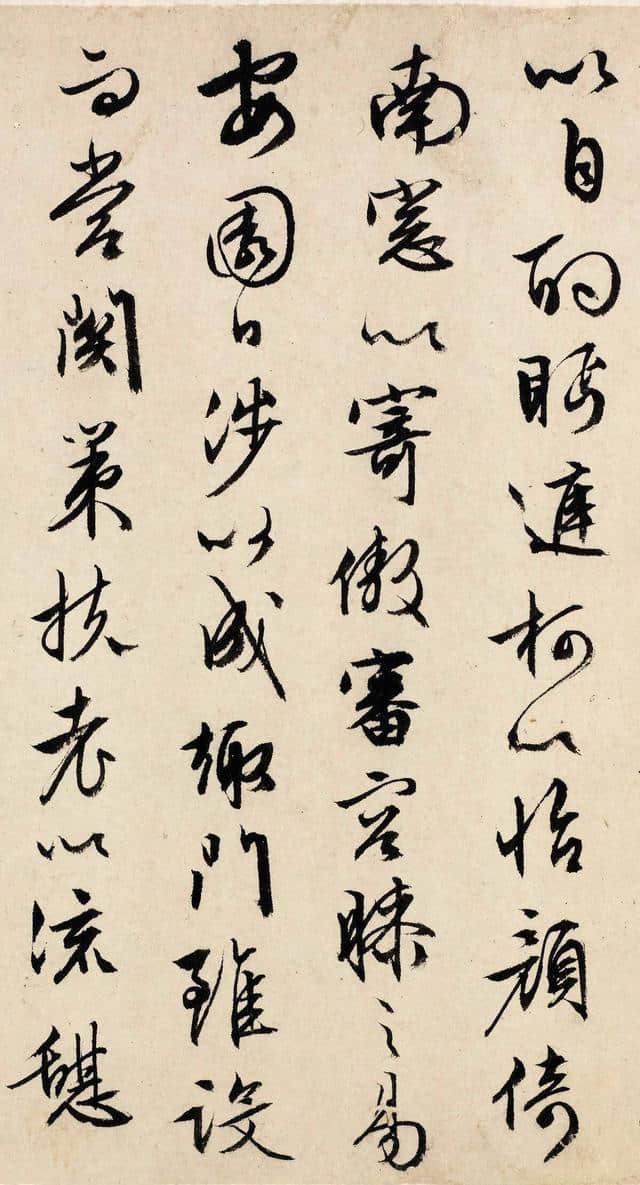 以自酌眄庭柯以怡顏倚
南窓以寄傲審容膝之易
安園日涉以成趣門雖設
而常關策扶老以流憩